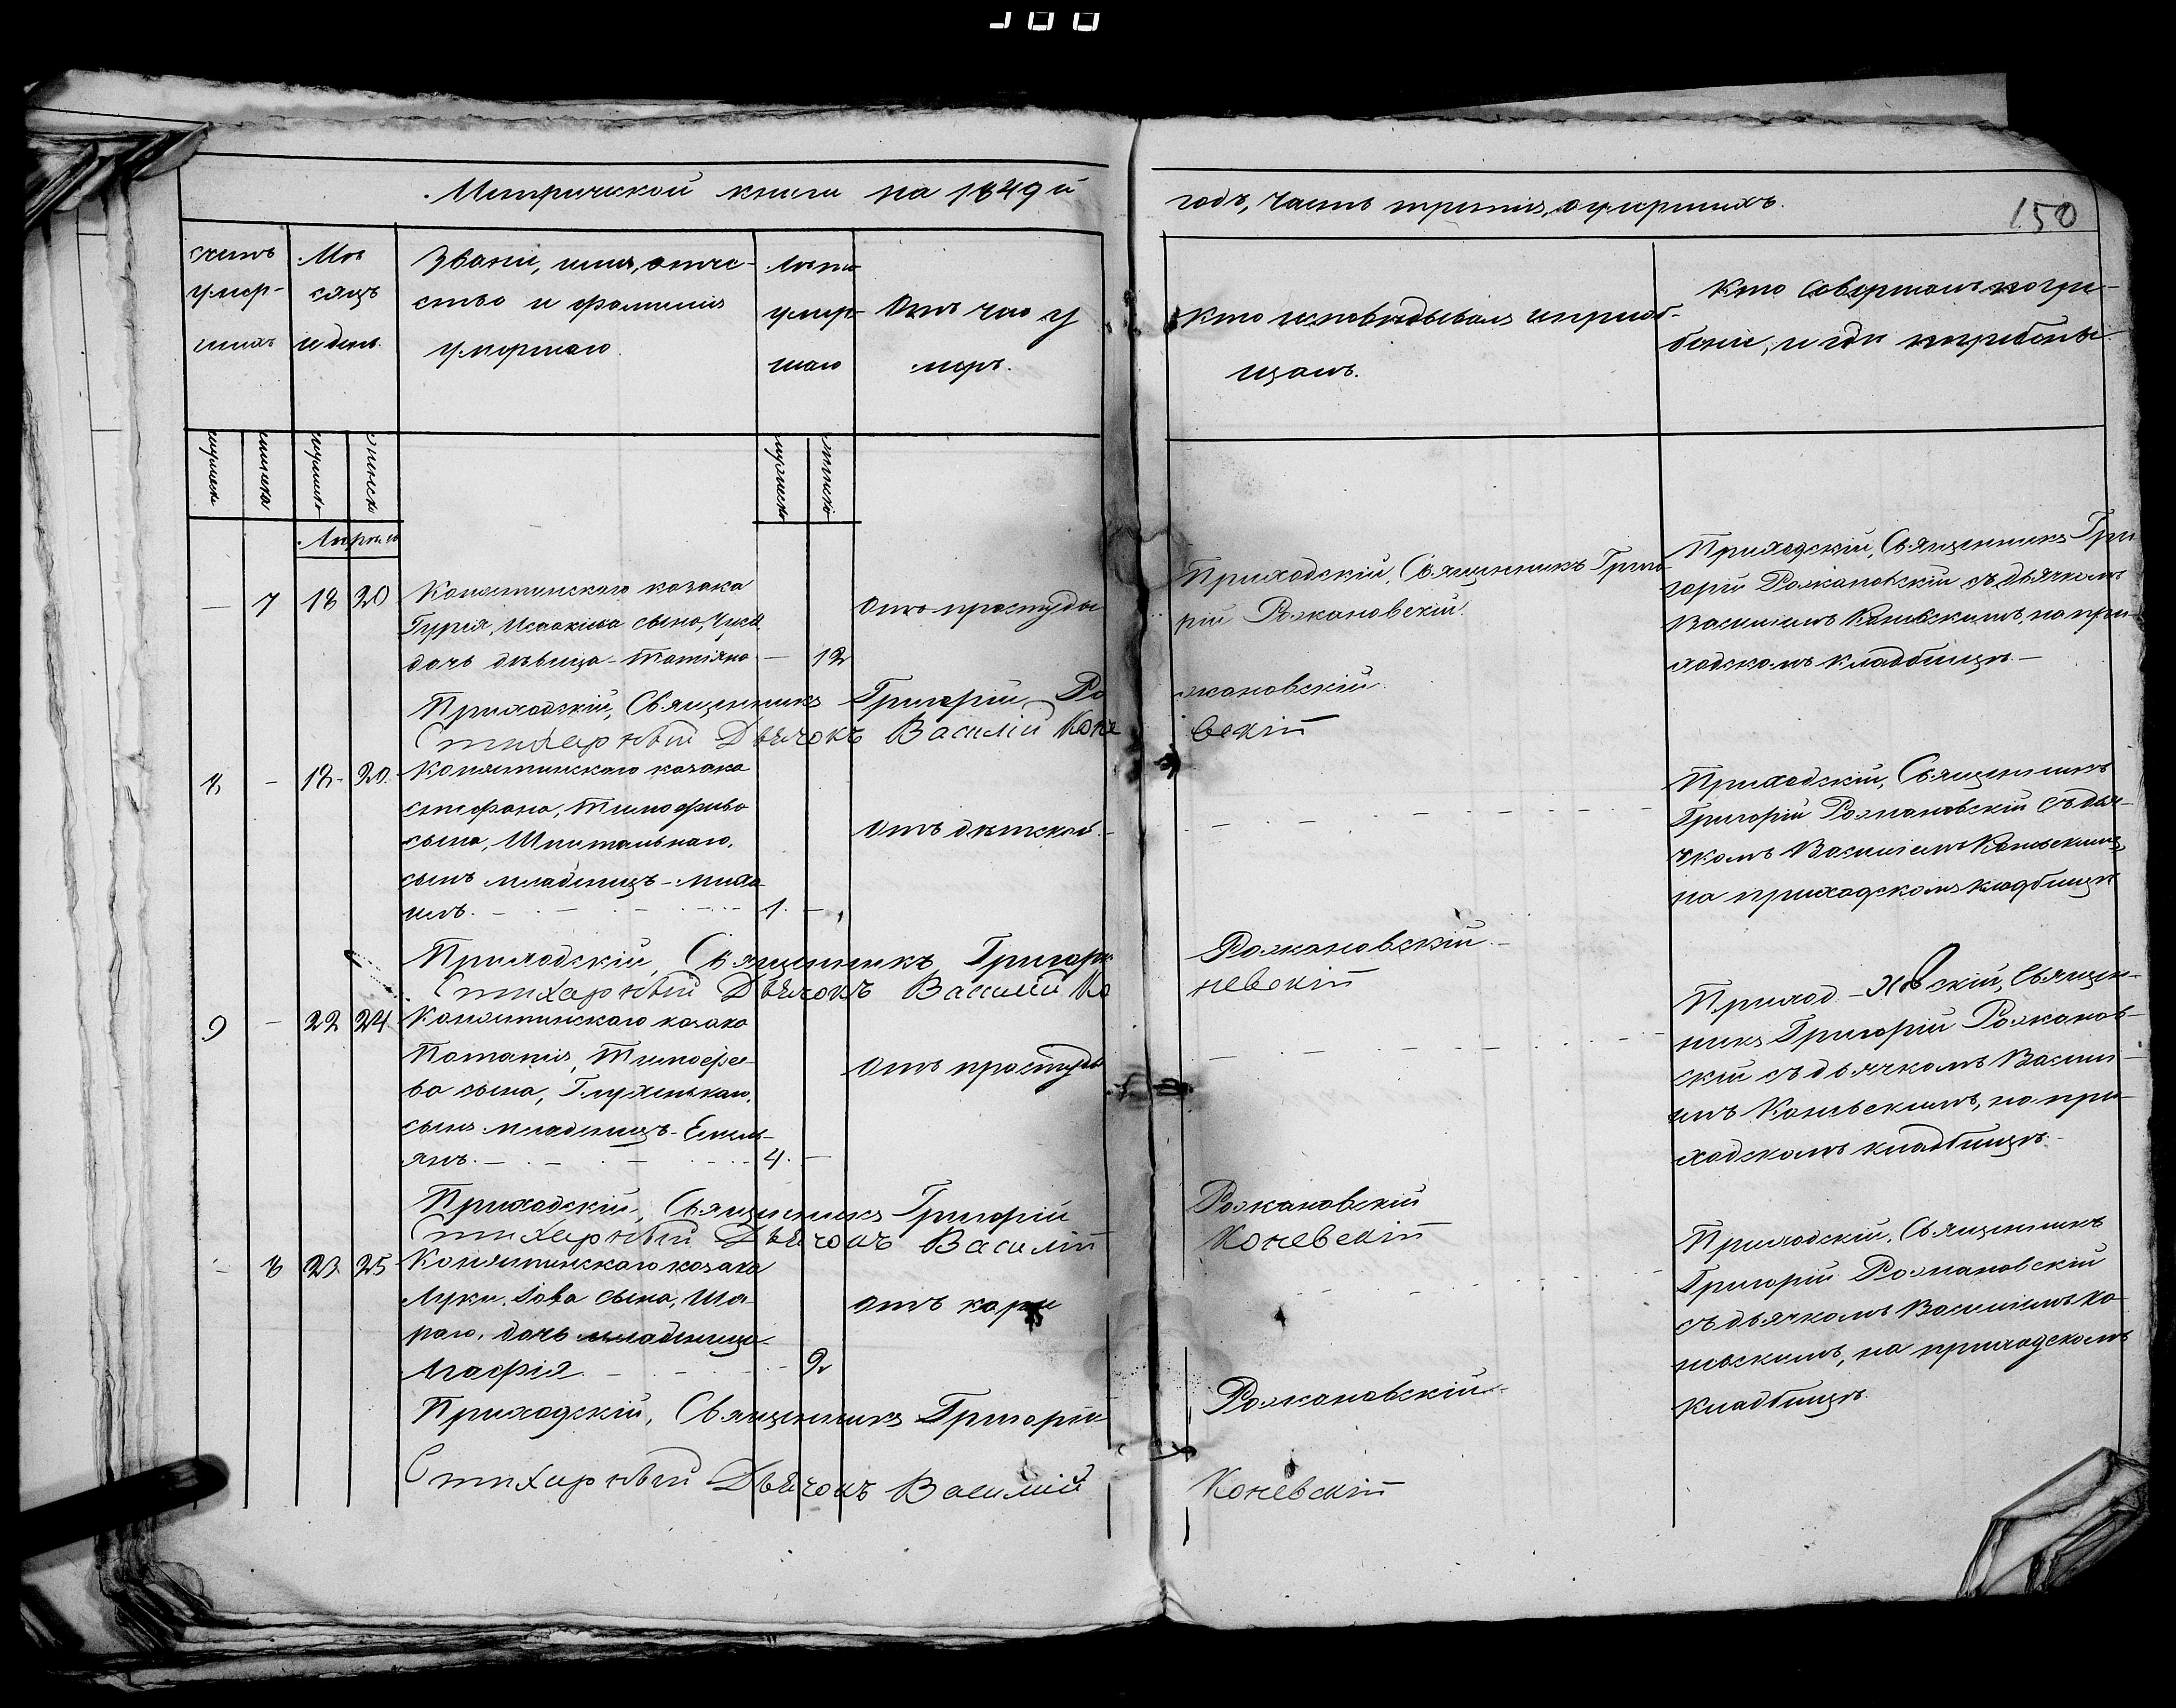 Метрической книги на 1849й
годъ, часть третія, о умершихъ.
150
счетъ умер-шихъ
Мѣсяцъ и день.
Званіе, имя, отче-
ство и фамилія
умершаго.
лѣта умер-шаго
Отъ чего у
меръ.
Кто исповѣдывалъ и пріоб-
щалъ.
Кто совершалъ погре-
беніе, и гдѣ погребены.
мужеска
женска
Апрель
— 7 18 20 Конятинскаго козака
сына,
дочь дѣвица Татіяна — 12
Отъ простуды
Приходскій, Священникъ Григо
рій Рожановскій.
Приходскій, Священникъ Гри
горій Рожановскій съ дьячкомъ
Василіемъ Коневскимъ, на при-
ходскомъ кладбищѣ.—
Приходскій, Священникъ Григорій Ро жановскій.
Стихарный Дьячокъ Василій Коне вскій
8 — 18 20 Конятинскаго козака
Стефана, Тимофѣева
сына, Шпитальнаго,
сынъ младенецъ - Миха
илъ. 1. —
Отъ дѣтской.
Приходскій, Священникъ
Григорій Рожановскій съ дья-
чкомъ Василіемъ Коневскимъ,
на приходскомъ кладбищѣ
Приходскій, Священникъ Григорій Рожановскій.—
Стихарный Дьячокъ Василій Ко невскій
9 — 22 24 Конятинскаго козака
Потапія, Тимофее-
ва сына,
сынъ младенецъ - Емель-
янъ. 4. —
Отъ простуды
Приход - скій, Священ-
никъ Григорій Рожанов-
скій съ дьячкомъ Васили-
емъ Коневскимъ, на при-
ходскомъ кладбищѣ.—
Приходскій, Священникъ Григорій Рожановскій
Стихарный Дьячокъ Василій Коневскій
— 8 23 25 Конятинскаго козака
Луки, сына,
дочь младеница
Агафія. — 2
Отъ кори
Приходскій, Священникъ
Григорій Рожановскій
съ дьячкомъ Василіемъ Ко
невскимъ, на приходскомъ
кладбищѣ.
Приходскій, Священникъ Григорій Рожановскій.—
Стихарный Дьячокъ Василій Коневскій